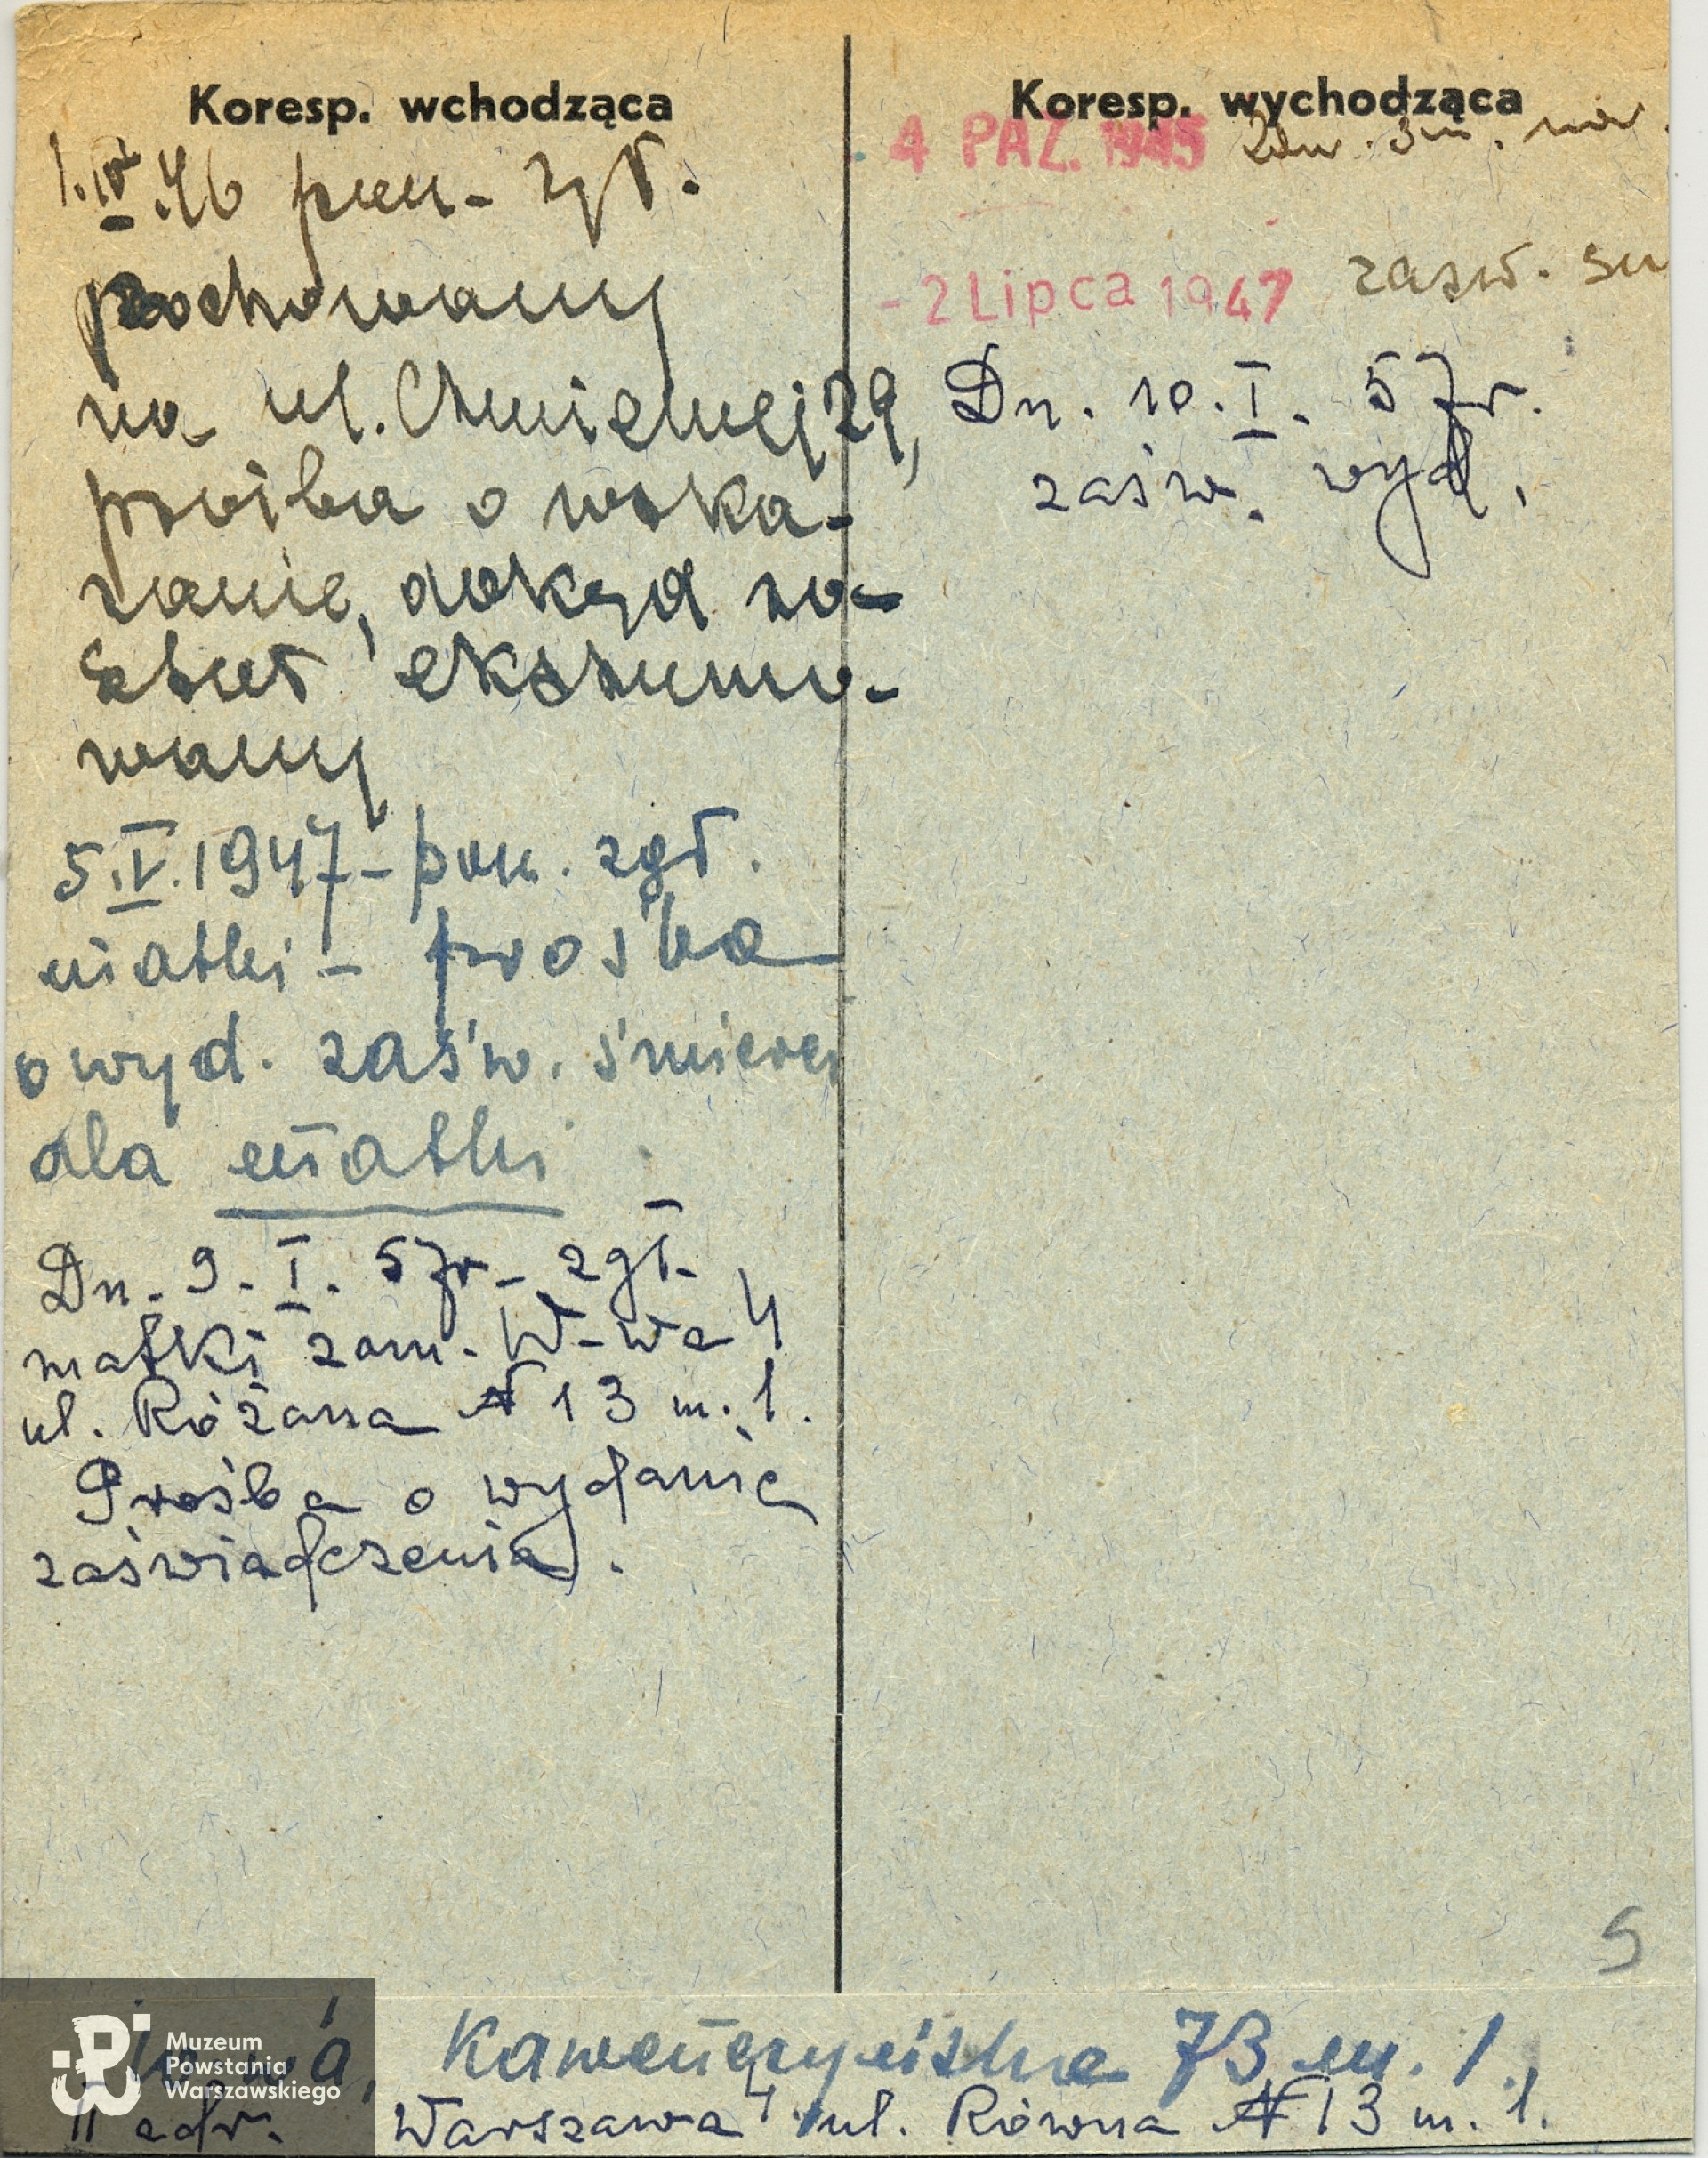 Koresp. wchodząca
1.IV.46 pon. zgł.
pochowany
na ul. Chmielnej 29,
prośba o wska-
zanie, dokąd zo-
stał ekshumo-
wany
5.IV.1947 - pon. zgł.
matki - prośba
o wyd. zaśw. śmierci
dla matki
Dn. 9. I. 57r - zgł.
matki zam. W-wa 4
ul. Różana N 13 m. 1.
Prośba o wydanie
zaświadczenia.
Koresp. wychodząca
4 PAZ. 1945
- 2 Lipca 1947 zaśw.
Dn. 10. I. 57r.
zaśw. wyd.
5
W-wa, Kawenczyńska 73 m. 1.
II adr. Warszawa 4 ul. Równa N 13 m. 1.
Muzeum
Powstania
Warszawskiego